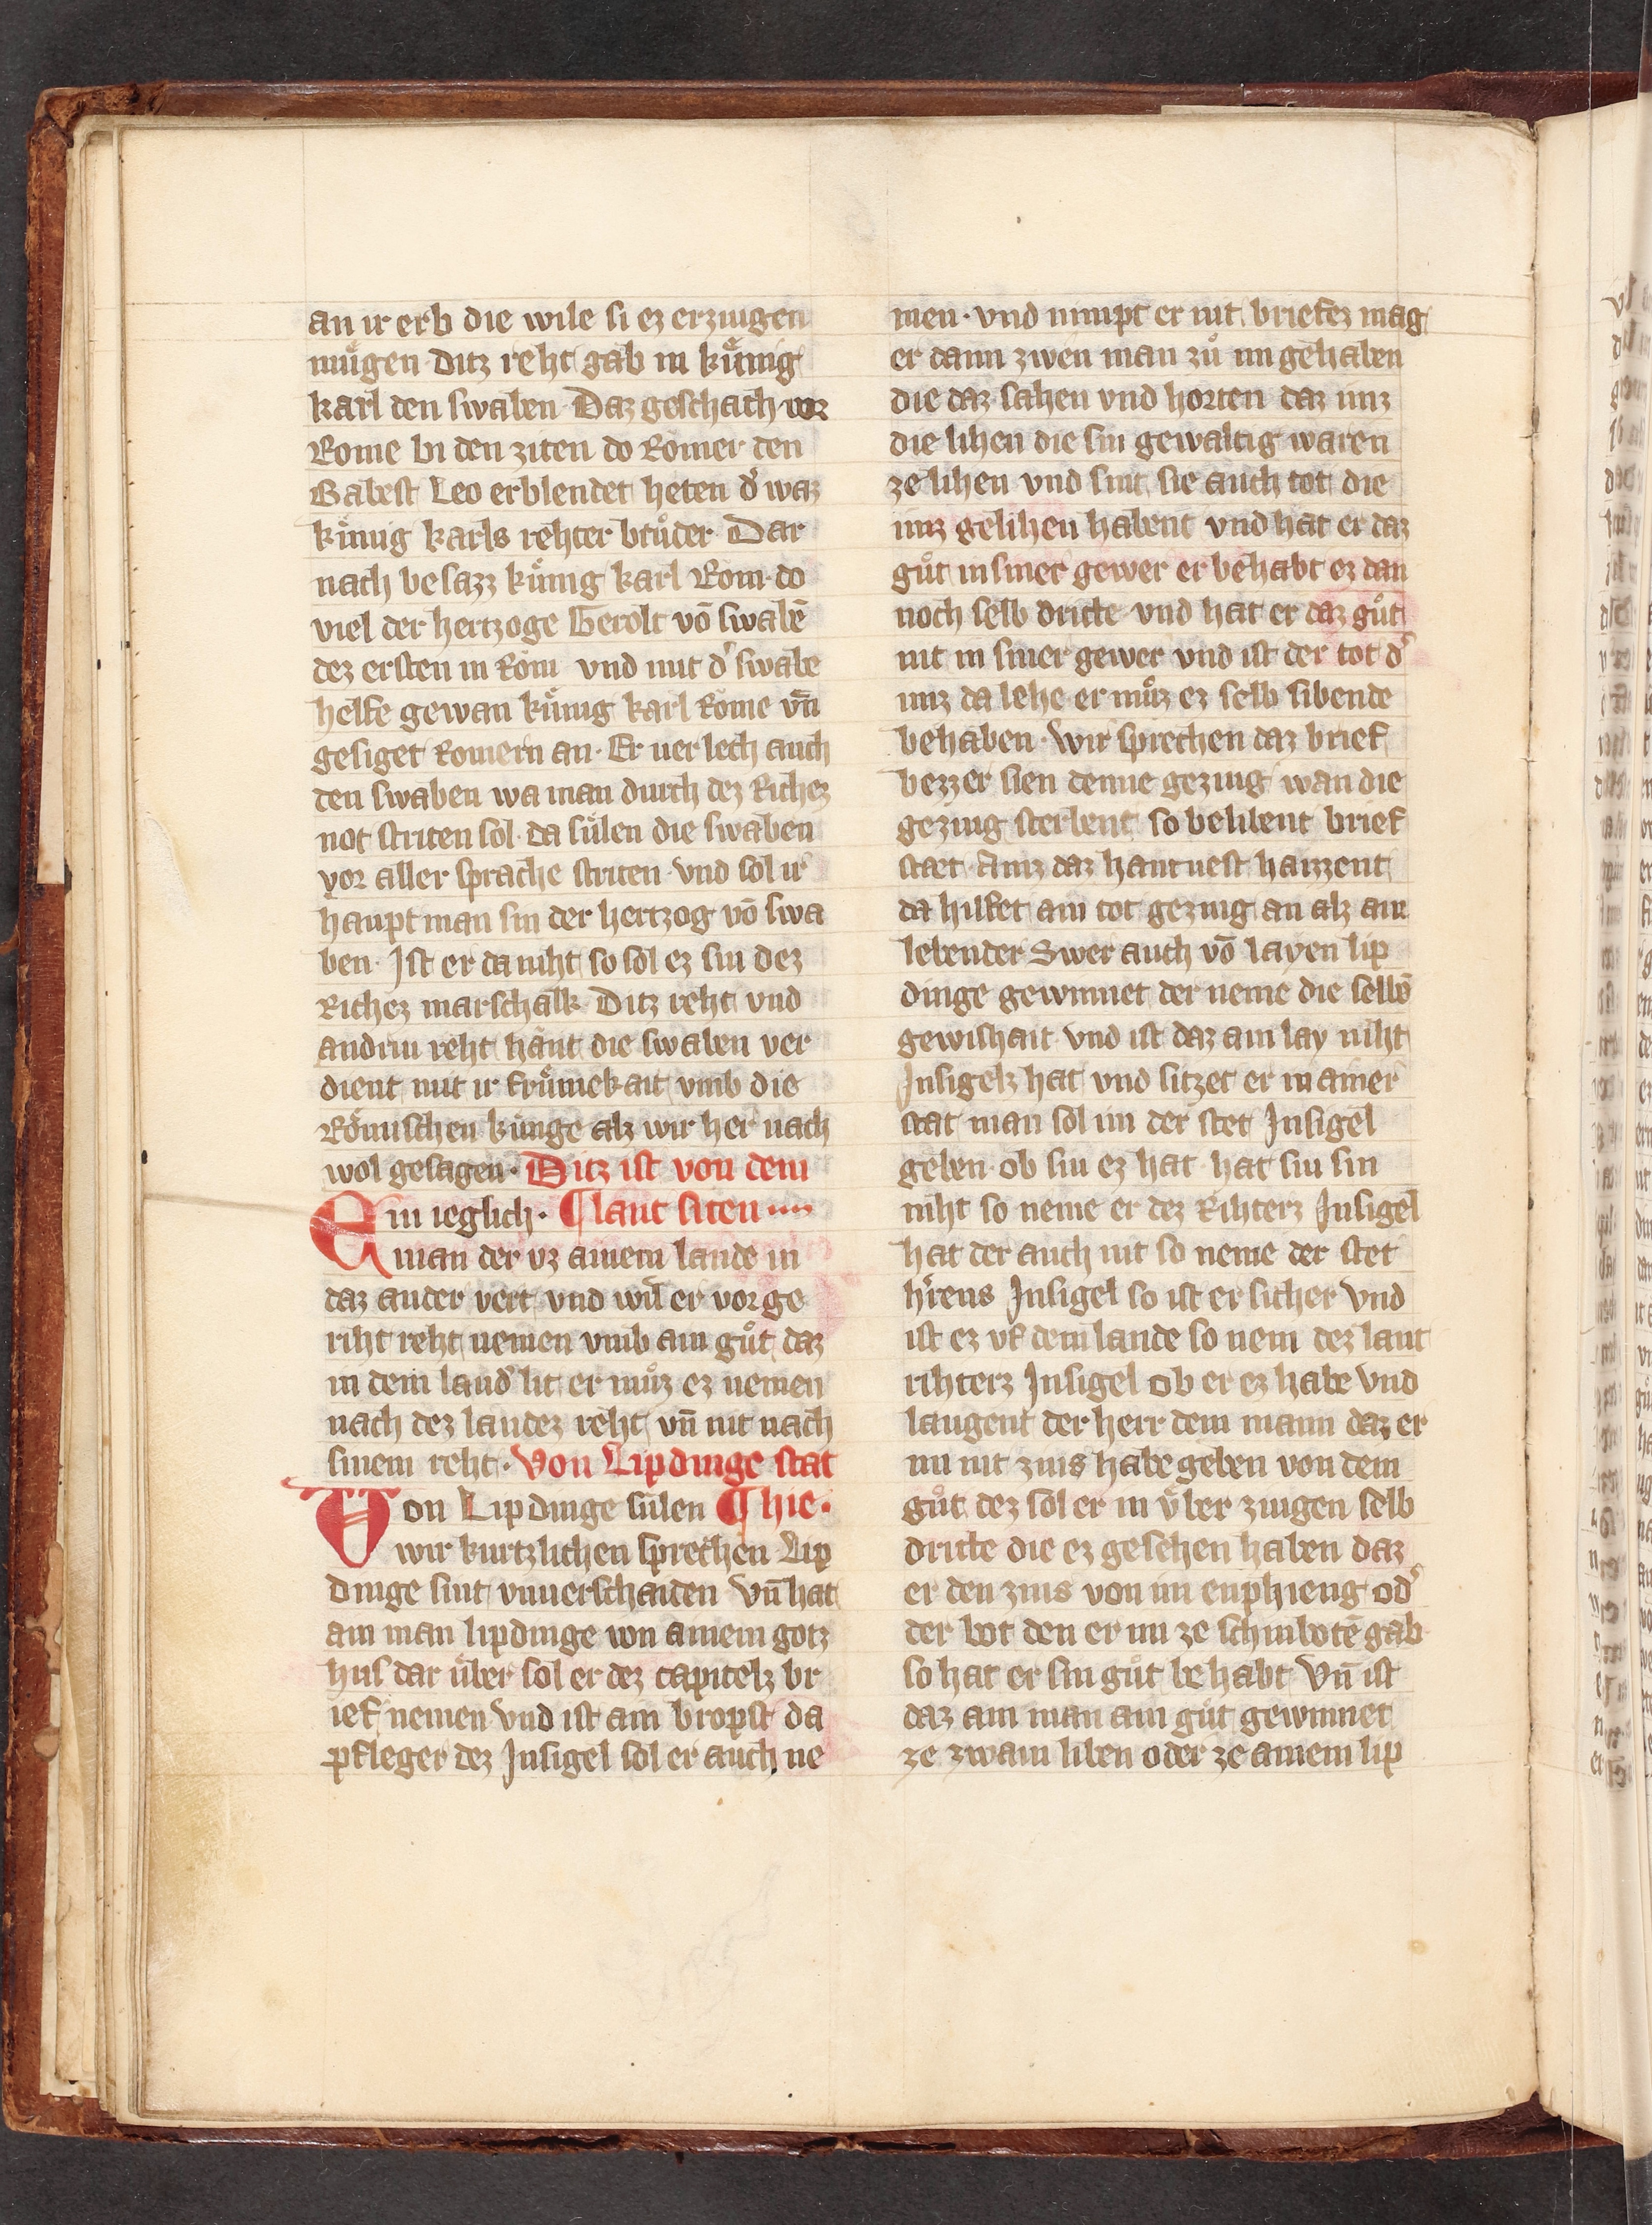 an ir erb die wile si ez erziugen
muͤgen ditz reht gab in kuͤnig
karl den swaben Daz geschach vor
Rome bi den ziten do Romer den
Babest Leo erblendet heten dˀ waz
kuͤnig karls rehter bruͦder Dar
nach besazz kuͤnig karl Rom· do
viel der hertzoge Gerolt võ swabẽ
dez ersten in Rom vnd mit dˀ swabe
helfe gewan kuͤnig karl Rome vñ
gesiget Romern an· Er uerlech auch
den swaben wa man durch dez Richez
not striten sol· da suͤlen die swaben
vor aller sprache striten· vnd sol ir
hauptman sin der hertzog võ swa
ben· Ist er da niht so sol ez sin dez
Richez marschalk Ditz reht vnd
andriu reht hant die swaben ver
dient mit ir fruͤmekait vmb die
Roͤmischen kuͤnge alz wir her nach
wol gesagen· Ditz ist von dem
Ein ieglich· ¶ lant siten ····
man der vz ainem lande in
daz ander vert vnd wil er vor ge
riht reht nemen vmb ain guͦt daz
in dem landˀ lit er muͦz ez nemen
nach dez landez reht vñ nit nach
sinem reht· Von Lipdinge stat
Von Lipdinge suͤlen ¶ hie·
wir kurtzlichen sprechen Lip
dinge sint vnuerschaiden vñ hat
ain man lipdinge von ainem gotz
hus dar uͤber sol er dez capitelz br
ief nemen vnd ist ain bropst da
pfleger dez Insigel sol er auch ne
men· vnd nimpt er nit briefez mag
er dann zwen man zuͦ im gehaben
die daz sahen vnd horten daz imz
die lihen die sin gewaltig waren
ze lihen vnd sint sie auch tot die
imz gelihen habent vnd hat er daz
guͦt in siner gewer er behabt ez dan
noch selb dritte· vnd hat er daz guͦt
nit in siner gewer vnd ist der tot dˀ
imz da lehe er muͦz ez selb sibende
behaben· Wir sprechen daz brief
bezzer sien denne geziug wan die
geziug sterbent so belibent brief
staet Ainz daz hantuest haizzent
da hilfet ain tot geziug an alz ain
lebender Swer auch võ layen lip
dinge gewinnet der neme die selbẽ
gewishait vnd ist daz ain lay niht
Insigelz hat vnd sitzet er in ainer
stat man sol im der stet Insigel
geben· ob siu ez hat· hat siu sin
niht so neme er dez Rihterz Insigel
hat der auch nit so neme der stet
hˀrens Insigel so ist er sicher vnd
ist ez vf dem lande so nem dez lant
rihterz Insigel ob er ez habe vnd
laugent der herr dem mann daz er
im nit zins habe geben von dem
guͦt dez sol er in uͤber ziugen selb
dritte die ez gesehen haben daz
er den zins von im enphieng odˀ
der bot den er im ze schinbotẽ gab
so hat er sin guͦt behabt vñ ist
daz ain man ain guͦt gewinnet
ze zwain liben oder ze ainem lip